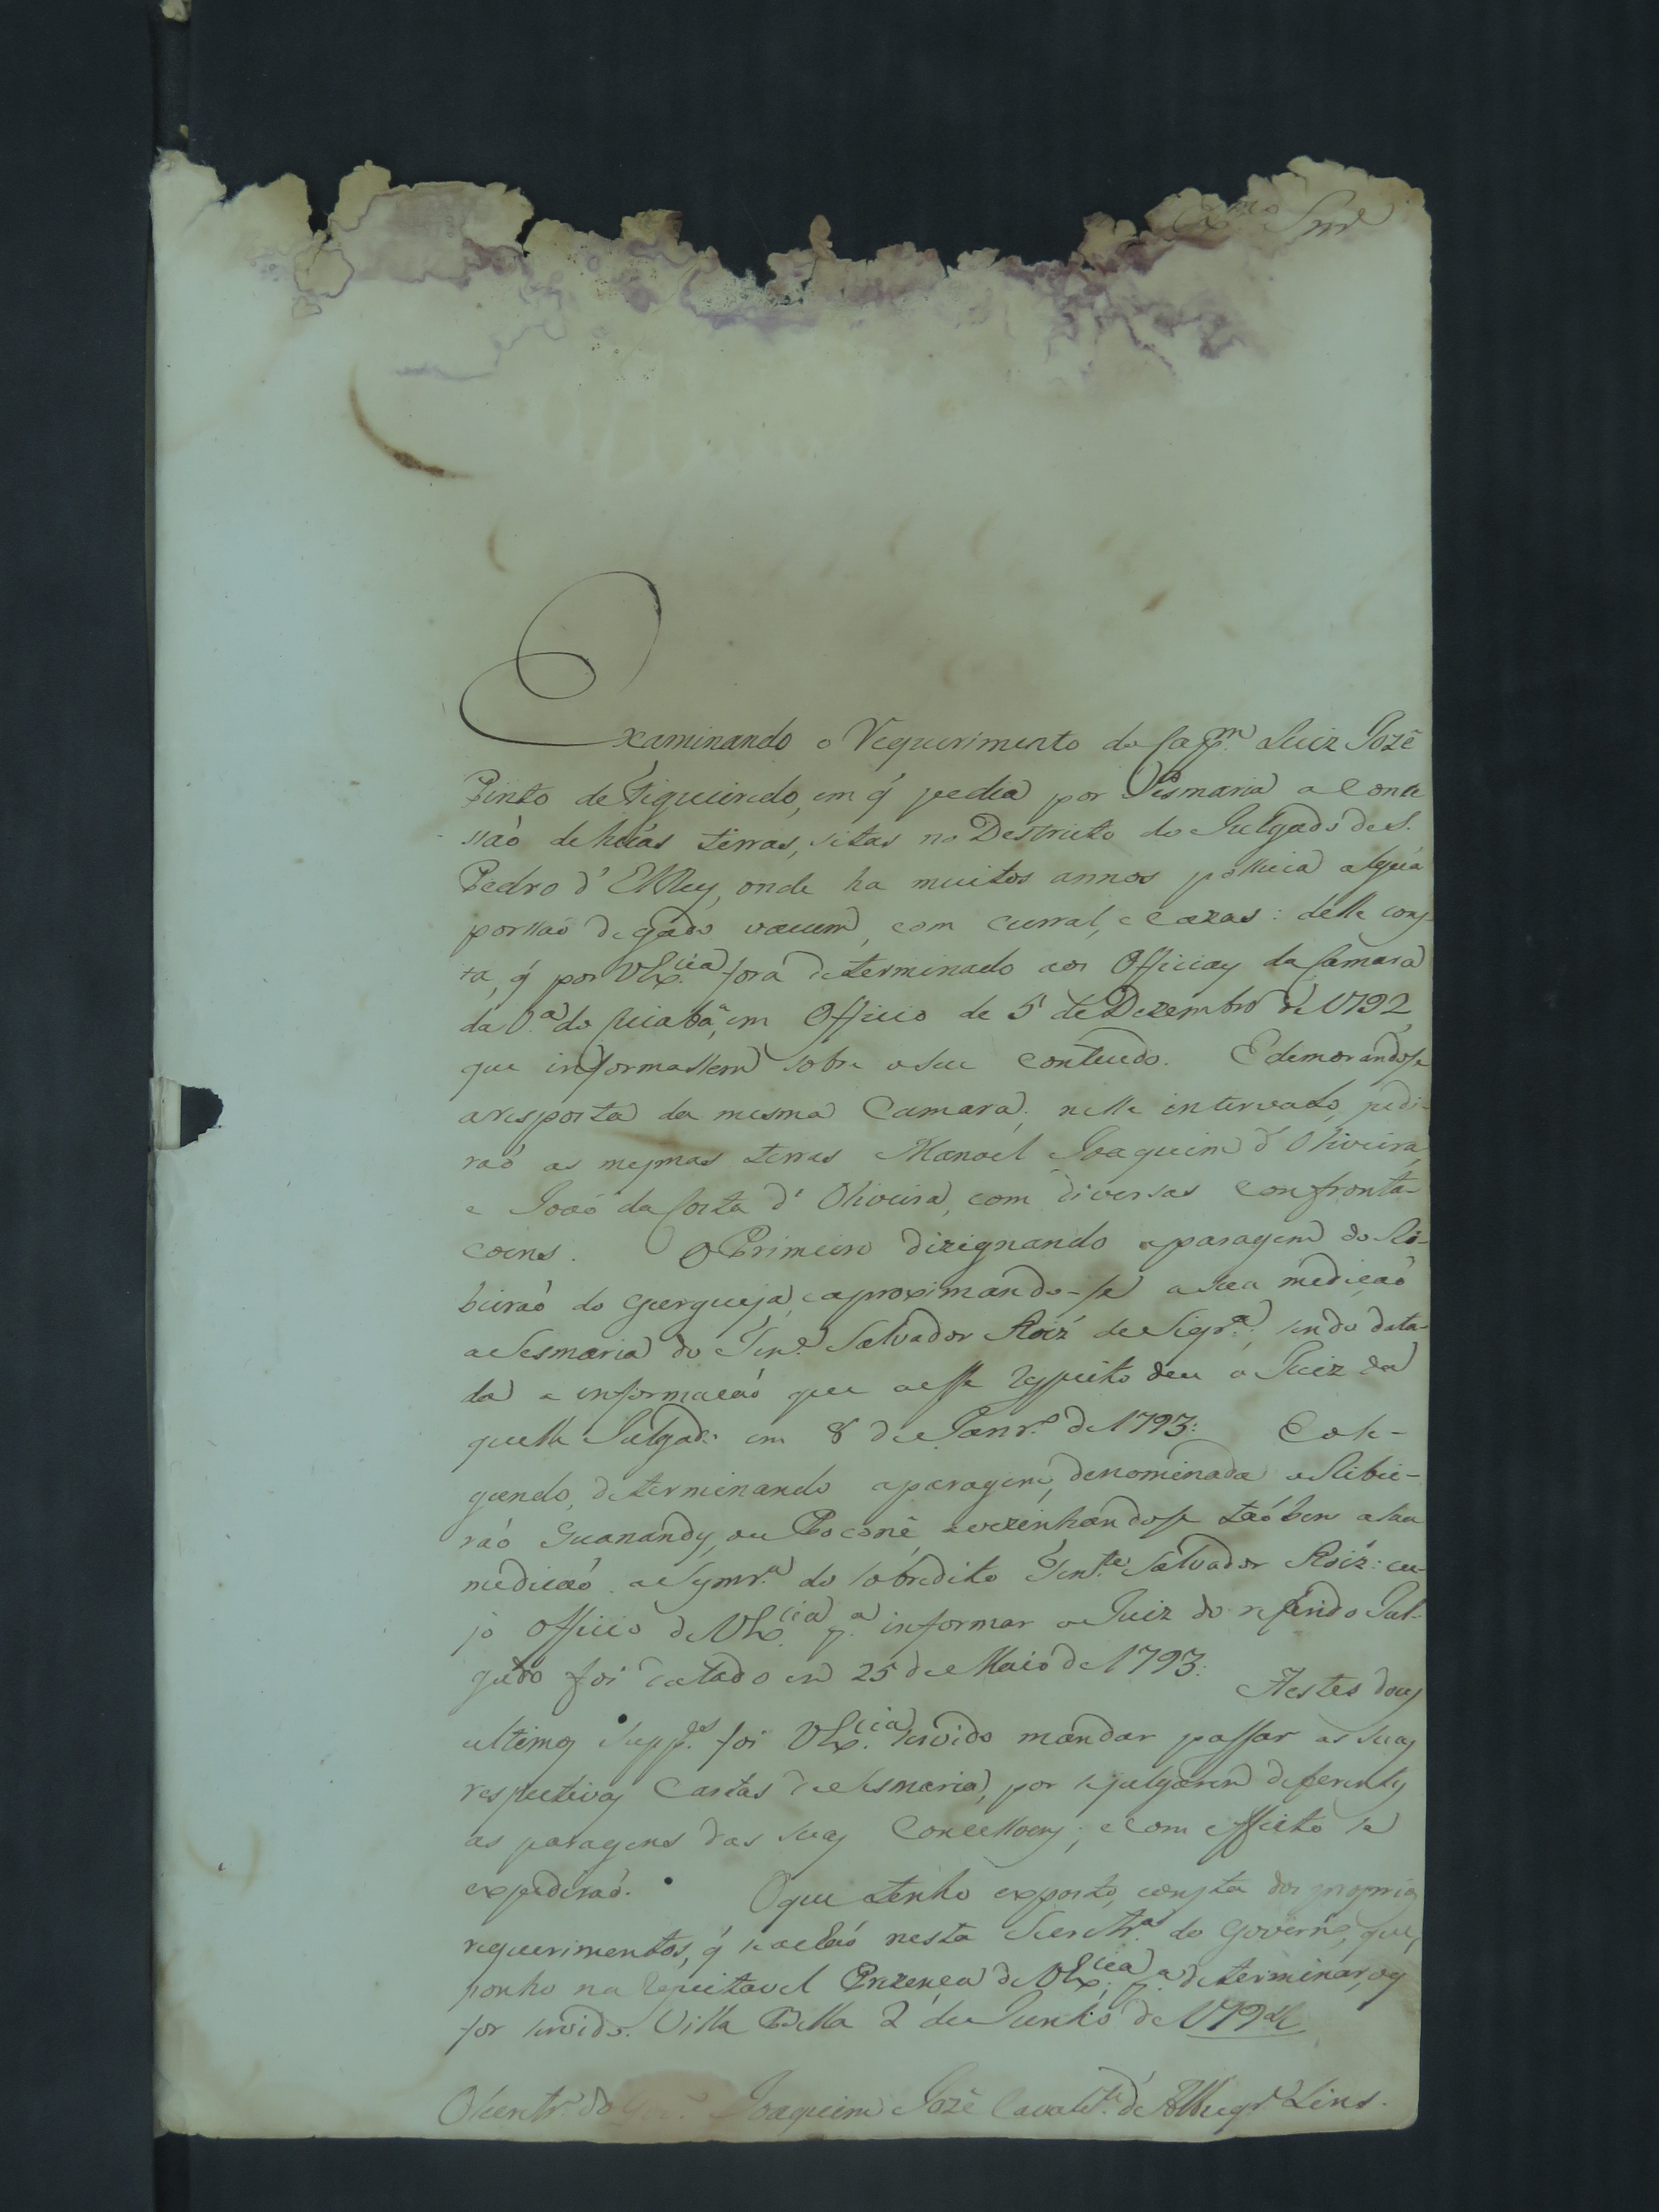 Ex.mo Snr̃
Examinando o Requerimento do Cap.m Luiz Jozê
Pinto de Figueiredo, em q̃ pedia por Sismaria a Conce
ssaõ de huãs terras, sitas no Destricto do Julgado de S.
Pedro d'ElRey, onde ha muitos annos possuia algũa
porssaõ de gado vacum, com curral, e cazas: delle cons
ta, q̃ por VEx.cia fora determinado aos Officiaes da Camara
da V.a do Cuiabâ, em Officio de 5 de Dezembro de 1792
que informassem sobre o seu contendo. E demorandose
a resposta da mesma Camara, nesse intervado, pedi-
raõ as mesmas terras Manoel Joaquim d'Oliveira,
e Joaõ da Costa d'Oliveira, com diversas confronta-
coens. O Primeiro dizignando a paragem do Ri-
beiraõ do Guerqueja, e aproximando-se a sua mediçaõ
a Sesmaria do Ten.e Salvador Roiz de Siqr.a; sendo data-
da a informaçaõ que a esse respeito deu o Juiz da
quelle Julgado em 8 de Janr.o de 1793: E o se-
gundo, determinando a paragem, denominada o Ribei-
raõ Guanandy, ou Poconê avezinhandose taõ bem a sua
mediçaõ a Sesmr.a do sobredito Ten.te Salvador Roiz: cu-
jo Officio de VEx.cia p.a informar o Juiz do referido Jul-
gado foi datado em 25 de Maio de 1793: A estes dous
ultimos Supp.es foi VEx.cia servido mandar passar as suas
respectivas Cartas de Sismaria, por se julgarem diferentes
as paragens das suas Concessoens; e com effeito se
expediraõ. O que tenho exposto, consta dos proprios
requerimentos, q̃ se achaõ nesta Secretr.a do Governo, que
ponho na respeitavel Prezença de VEx.cia p.a determinar, o q̃
for servido. Villa Bella 2 de Junho de 179
O Secretr.o do Gov.o Joaquim Jozê Cavalc.te d'Albuqr.e Lins.